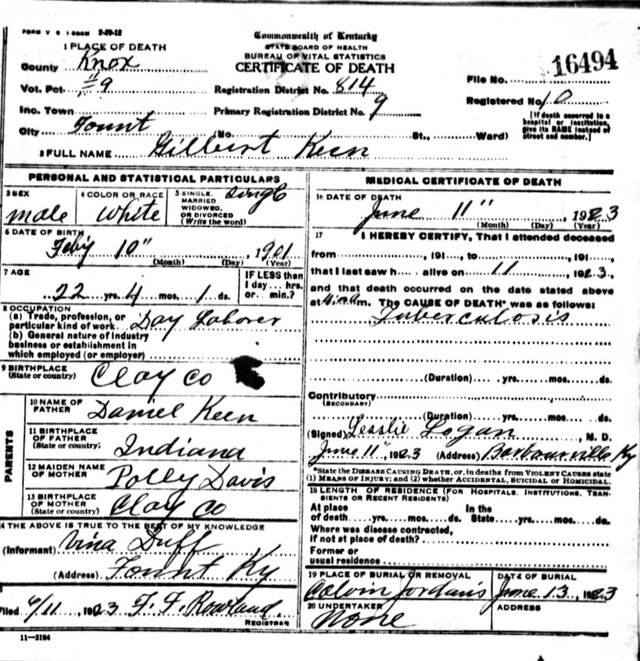 FORM V S 1 500M 2-29-12
Commonwealth of Kentucky
STATE BOARD OF HEALTH
BUREAU OF VITAL STATISTICS
CERTIFICATE OF DEATH
1 PLACE OF DEATH
County Knox
Vot. Pct. #9
Inc. Town
City Fount
Registration District No. 814
Primary Registration District No. 9
(No. St., Ward)
File No. 16494
Registered No. 10
[If death occurred in a hospital or institution, give its NAME instead of street and number.]
2 FULL NAME Gilbert Keen
PERSONAL AND STATISTICAL PARTICULARS
3 SEX
male
4 COLOR OR RACE
White
5 SINGLE, MARRIED WIDOWED, OR DIVORCED (Write the word)
Single
6 DATE OF BIRTH
Feby 10" 1901
(Month) (Day) (Year)
7 AGE
22 yrs. 4 mos. 1 ds.
IF LESS than 1 day ... hrs. or ... min.?
8 OCCUPATION
(a) Trade, profession, or particular kind of work Day Laborer
(b) General nature of industry business or establishment in which employed (or employer)
9 BIRTHPLACE
(State or country) Clay Co
PARENTS
10 NAME OF FATHER Daniel Keen
11 BIRTHPLACE OF FATHER (State or country) Indiana
12 MAIDEN NAME OF MOTHER Polly Davis
13 BIRTHPLACE OF MOTHER (State or country) Clay Co
14 THE ABOVE IS TRUE TO THE BEST OF MY KNOWLEDGE
(Informant) Vina Duff
(Address) Fount Ky
Filed 6/11 1923 F. F. Rowland
REGISTRAR
11-3184
MEDICAL CERTIFICATE OF DEATH
16 DATE OF DEATH
June 11" 1923
(Month) (Day) (Year)
17 I HEREBY CERTIFY, That I attended deceased
from 191 , to 191 ,
that I last saw h alive on 11 1923,
and that death occurred on the date stated above
at m. The CAUSE OF DEATH* was as follows:
Tuberculosis
(Duration) yrs. mos. ds.
Contributory
(SECONDARY)
(Duration) yrs. mos. ds.
(Signed) Lesslie Logan, M. D.
June 11" 1923 (Address) Barbourville Ky
*State the DISEASE CAUSING DEATH, or, in deaths from VIOLENT CAUSES state (1) MEANS OF INJURY; and (2) whether ACCIDENTAL, SUICIDAL or HOMICIDAL.
18 LENGTH OF RESIDENCE (FOR HOSPITALS, INSTITUTIONS, TRANSIENTS OR RECENT RESIDENTS)
At place of death yrs. mos. ds. In the State yrs. mos. ds.
Where was disease contracted, if not at place of death?
Former or usual residence
19 PLACE OF BURIAL OR REMOVAL
Calvin Jordans
DATE OF BURIAL
June 13, 1923
20 UNDERTAKER
None
ADDRESS